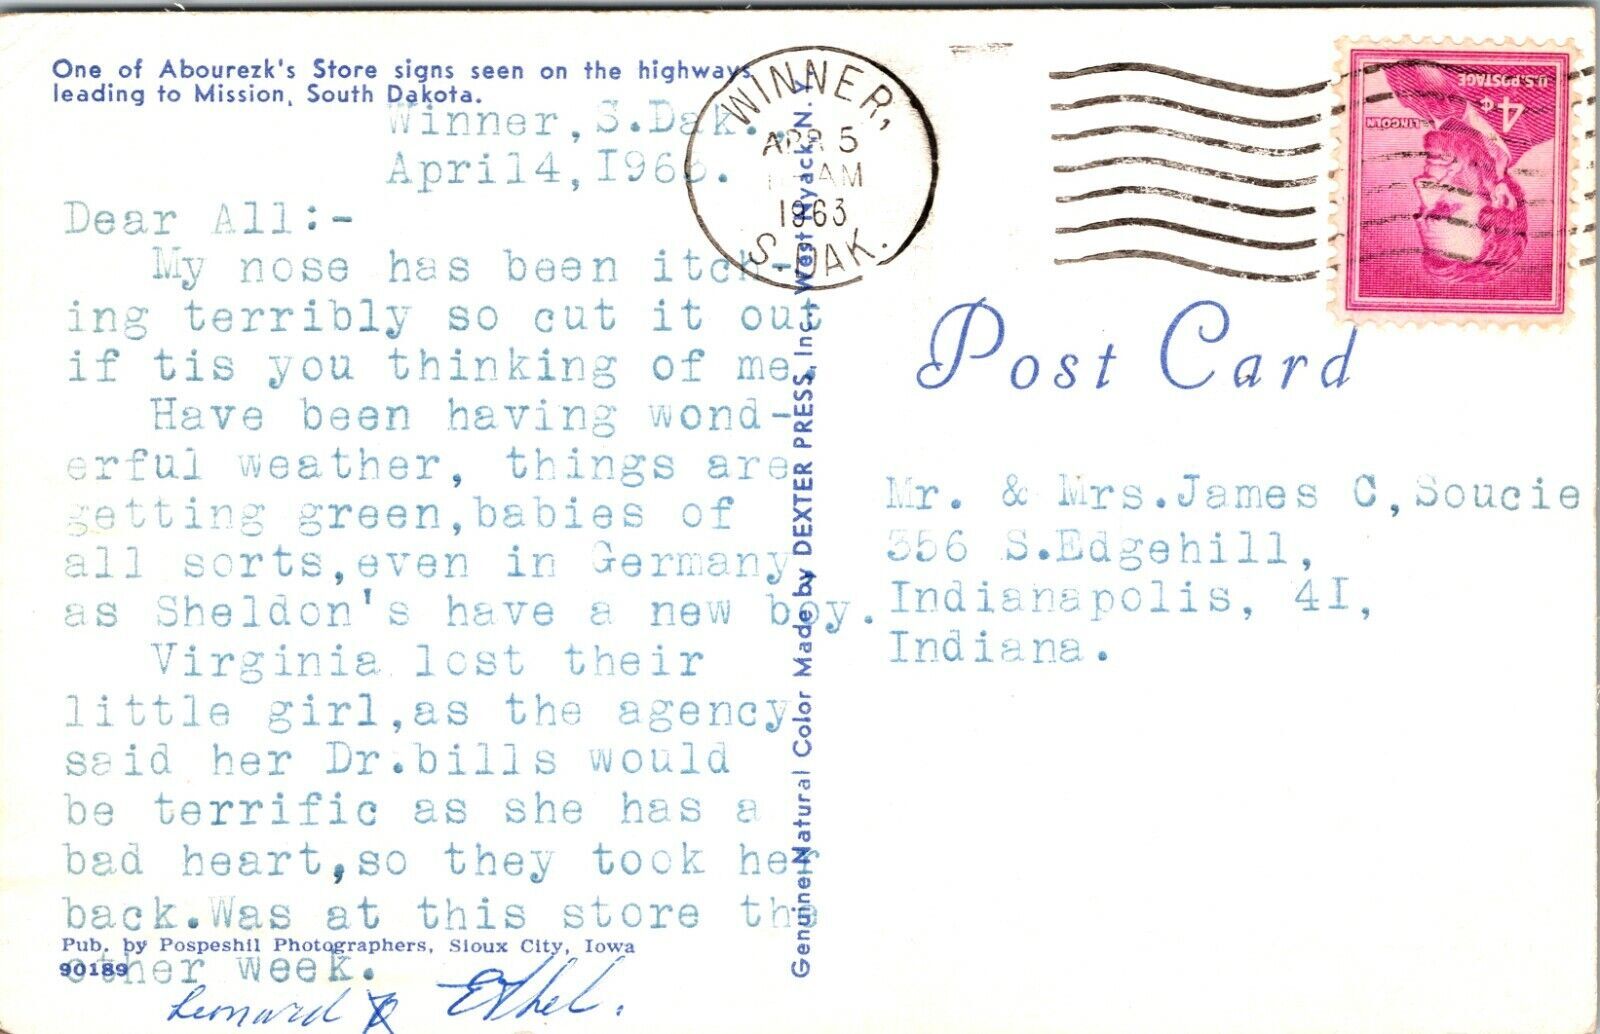 One of Abourezk's Store signs seen on the highways
leading to Mission, South Dakota.
Winner, S.Dak.,
April4, I963.
Dear All:-
My nose has been itch-
ing terribly so cut it out
if tis you thinking of me.
Have been having wond-
erful weather, things are
getting green,babies of
all sorts,even in Germany
as Sheldon's have a new boy.
Virginia lost their
little girl,as the agency
said her Dr.bills would
be terrific as she has a
bad heart,so they took her
back.Was at this store the
other week.
Leonard & Ethel.
Pub. by Pospeshil Photographers, Sioux City, Iowa
90189
Genuine Natural Color Made by DEXTER PRESS, Inc., West Nyack, N. Y.
WINNER,
APR 5
AM
1963
S. DAK.
U.S. POSTAGE
4¢
LINCOLN
Post Card
Mr. & Mrs.James C,Soucie
356 S.Edgehill,
Indianapolis, 4I,
Indiana.